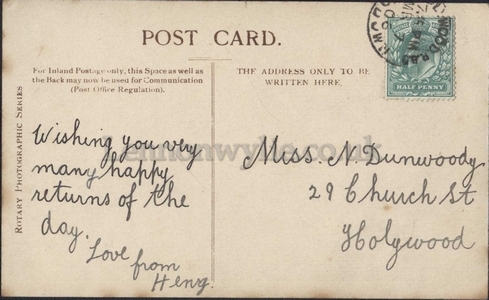 POST CARD.
For Inland Postage only, this Space as well as
the Back may now be used for Communication
(Post Office Regulation).
THE ADDRESS ONLY TO BE
WRITTEN HERE.
HALF PENNY
ROTARY PHOTOGRAPHIC SERIES
Wishing you very
many happy
returns of the
day.
Love
from
Miss N. Dunwoody
29 Church St
Holywood